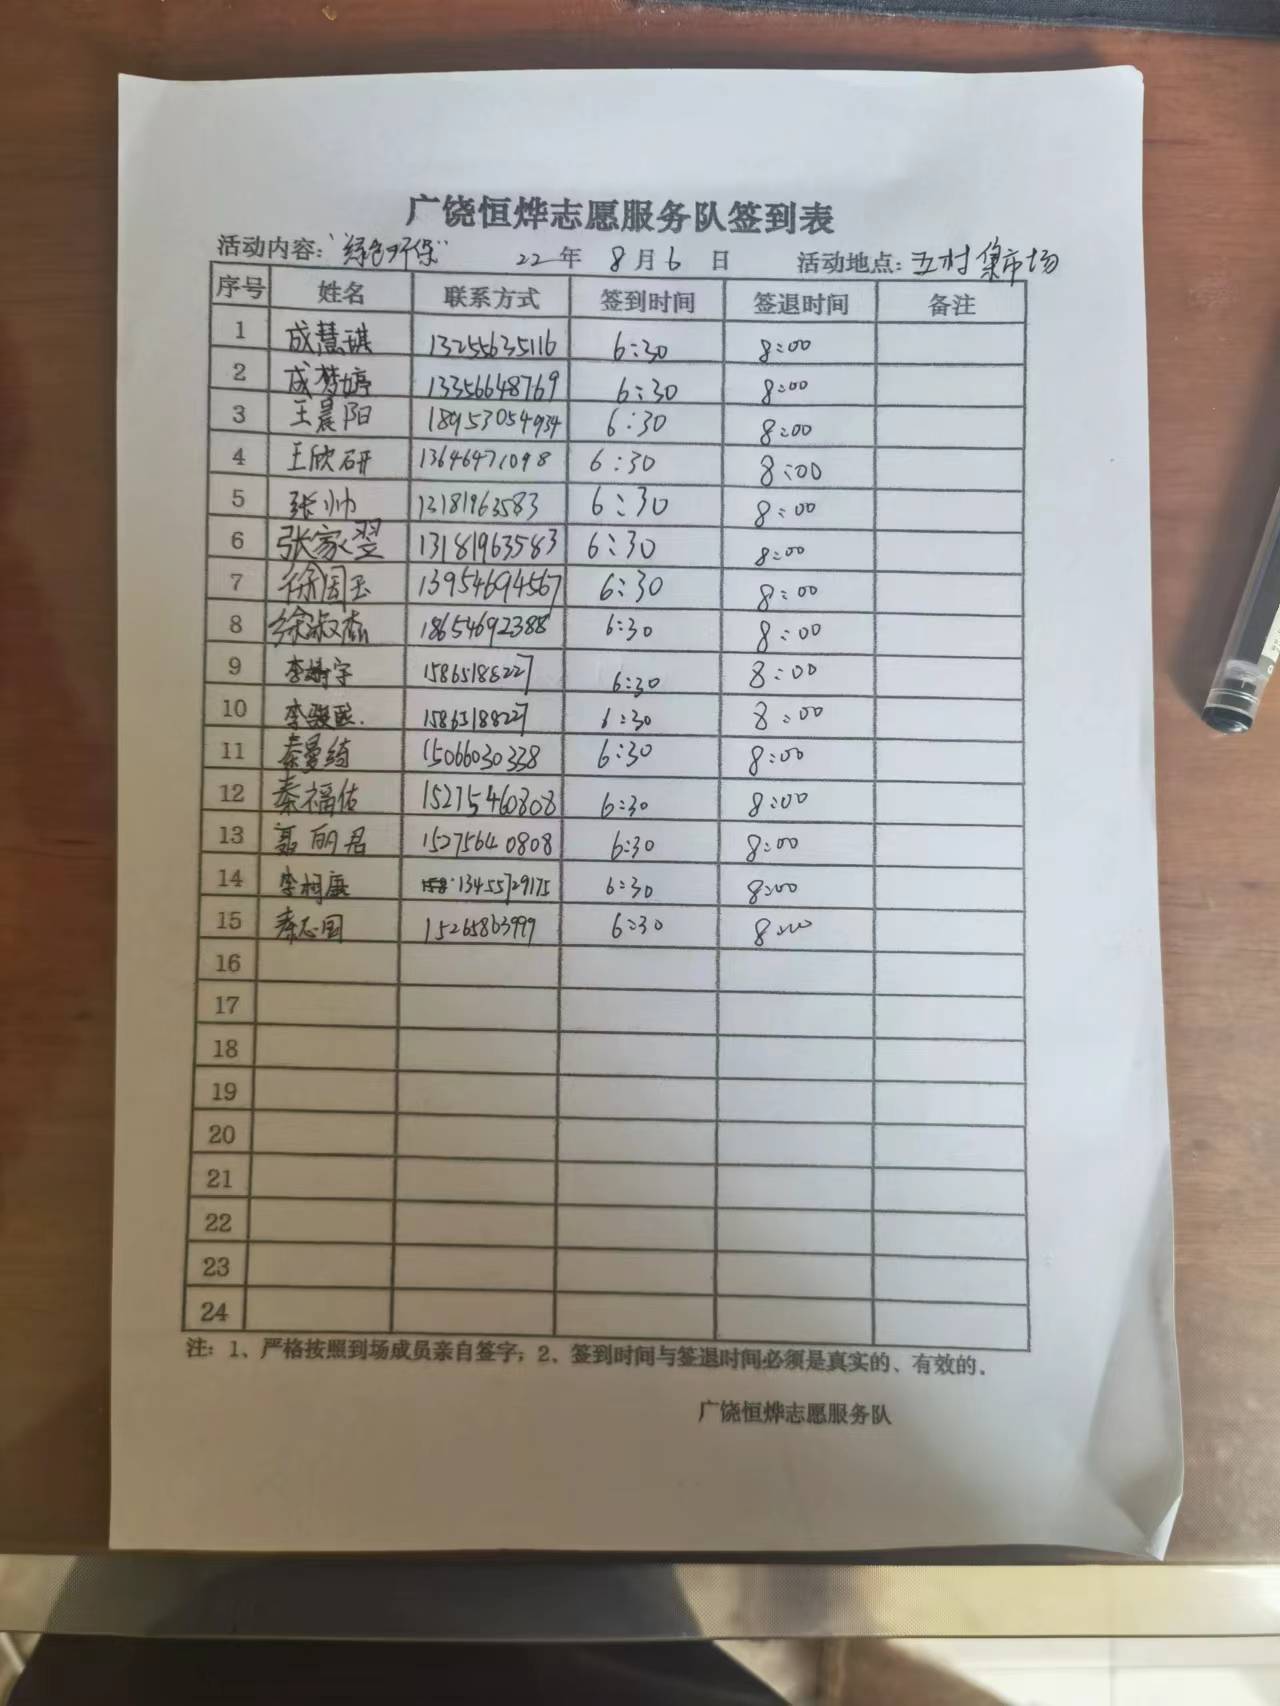 广饶恒烨志愿服务队签到表
活动内容:"绿色环保" 22年 8月6日 活动地点:五村集市场
序号 姓名 联系方式 签到时间 签退时间 备注
1 成慧琪 13255635116 6:30 8:00
2 成梦婷 13356648769 6:30 8:00
3 王晨阳 18953054934 6:30 8:00
4 王欣研 13646471098 6:30 8:00
5 张帅 13181963583 6:30 8:00
6 张家翌 13181963583 6:30 8:00
7 徐国玉 13954694567 6:30 8:00
8 徐淑杰 18654692388 6:30 8:00
9 李 宇 15865188227 6:30 8:00
10 李 15865188227 6:30 8:00
11 秦曼绮 15066030338 6:30 8:00
12 秦福佑 15275460808 6:30 8:00
13 聂丽君 15275640808 6:30 8:00
14 李柯康 13455729175 6:30 8:00
15 秦志国 15265863999 6:30 8:00
16
17
18
19
20
21
22
23
24
注:1、严格按照到场成员亲自签字;2、签到时间与签退时间必须是真实的、有效的.
广饶恒烨志愿服务队